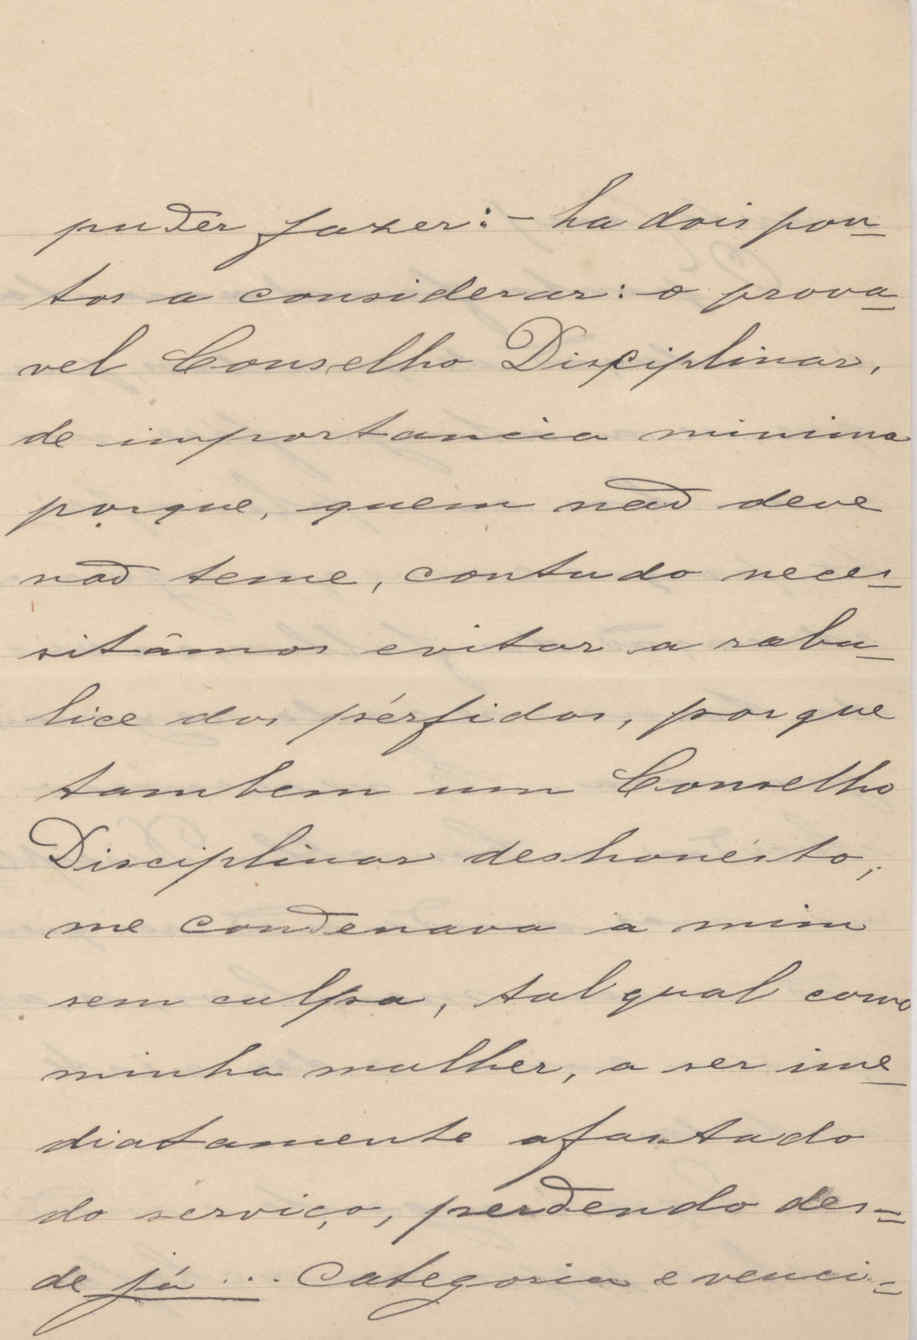 puder fazer:- ha dois pon-
tos a considerar: o prova-
vel Conselho Disciplinar,
de importancia minima
porque, quem não deve
não teme, contudo neces-
sitâmos evitar a rabu-
lice dos pérfidos, porque
tambem um Conselho
Disciplinar deshonésto,
me condenava a mim
sem culpa, tal qual como
minha mulher, a ser ime-
diatamente afastado
do serviço, perdendo des-
de já ... Categoria e venci-